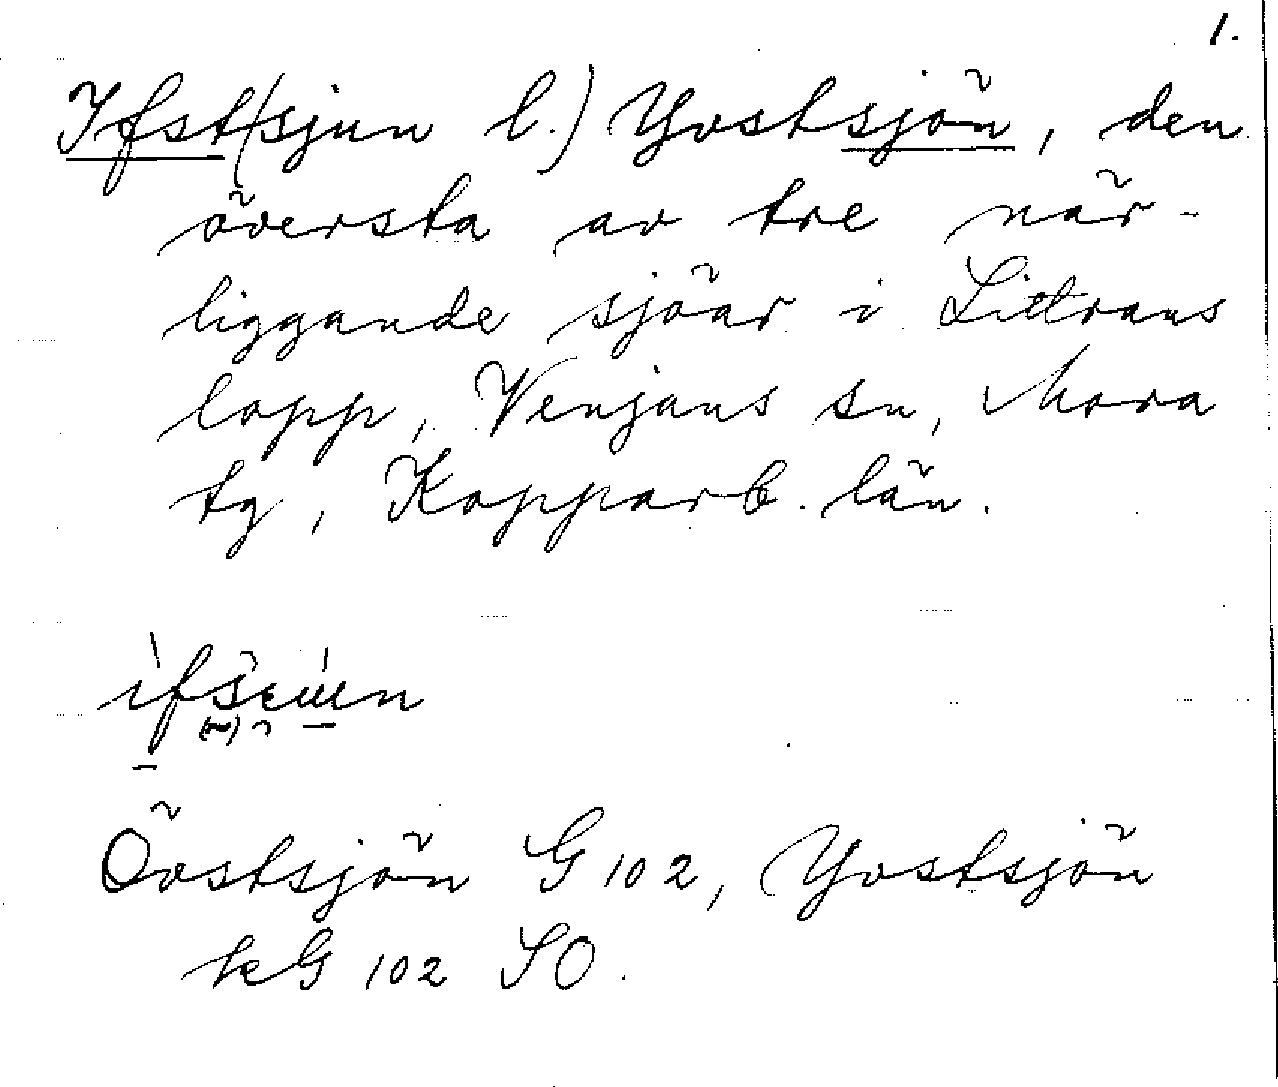 1.
Ifst(sjun l.) Yvstsjön, den
översta av tre när-
liggande sjöar i Littrans
lopp, Venjans sn, Mora
tg, Kopparb. län.
Övstsjön G 102, Yvstsjön
kG 102 SO.